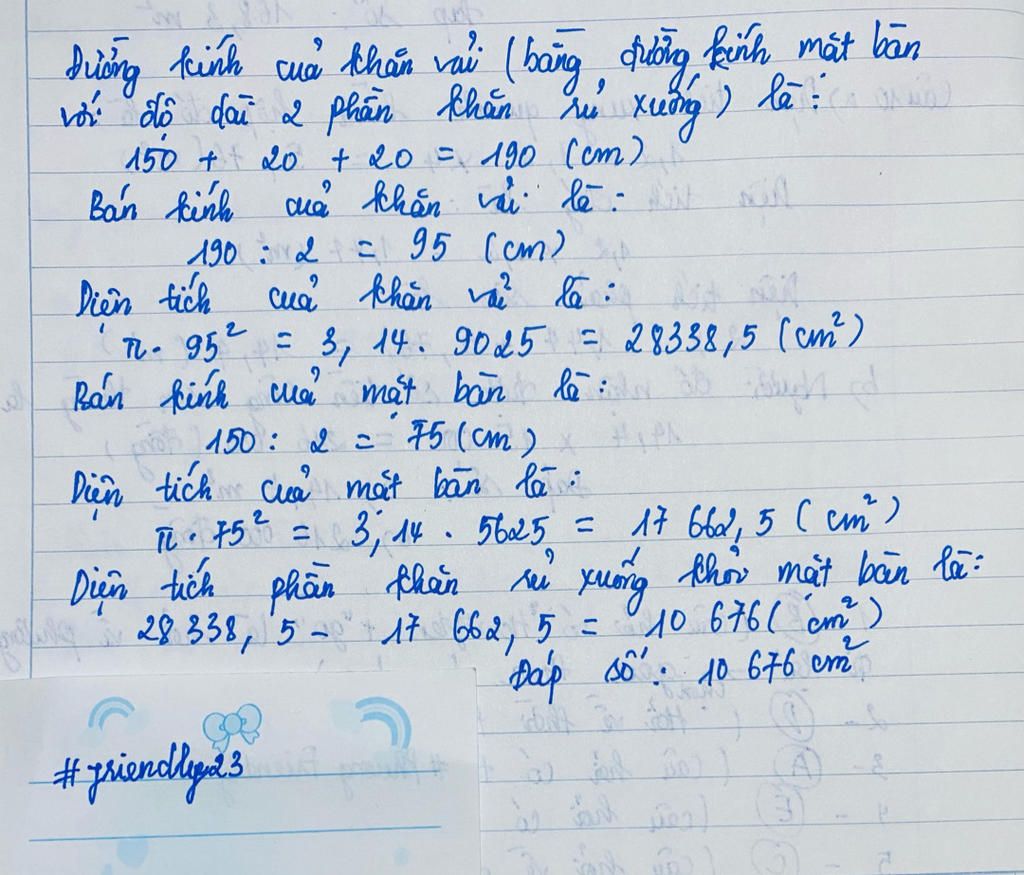 Đường kính của khăn vải (bằng đường kính mặt bàn
với độ dài 2 phần khăn rủ xuống) là:
150 + 20 + 20 = 190 (cm)
Bán kính của khăn vải là:
190 : 2 = 95 (cm)
Diện tích của khăn vải là:
π. 95² = 3,14. 9025 = 28338,5 (cm²)
Bán kính của mặt bàn là:
150: 2 = 75 (cm)
Diện tích của mặt bàn là:
π. 75² = 3,14. 5625 = 17 662,5 (cm²)
Diện tích phần khăn rủ xuống khỏi mặt bàn là:
28 338,5 - 17 662,5 = 10 676 (cm²)
Đáp số: 10 676 cm²
#friendly23